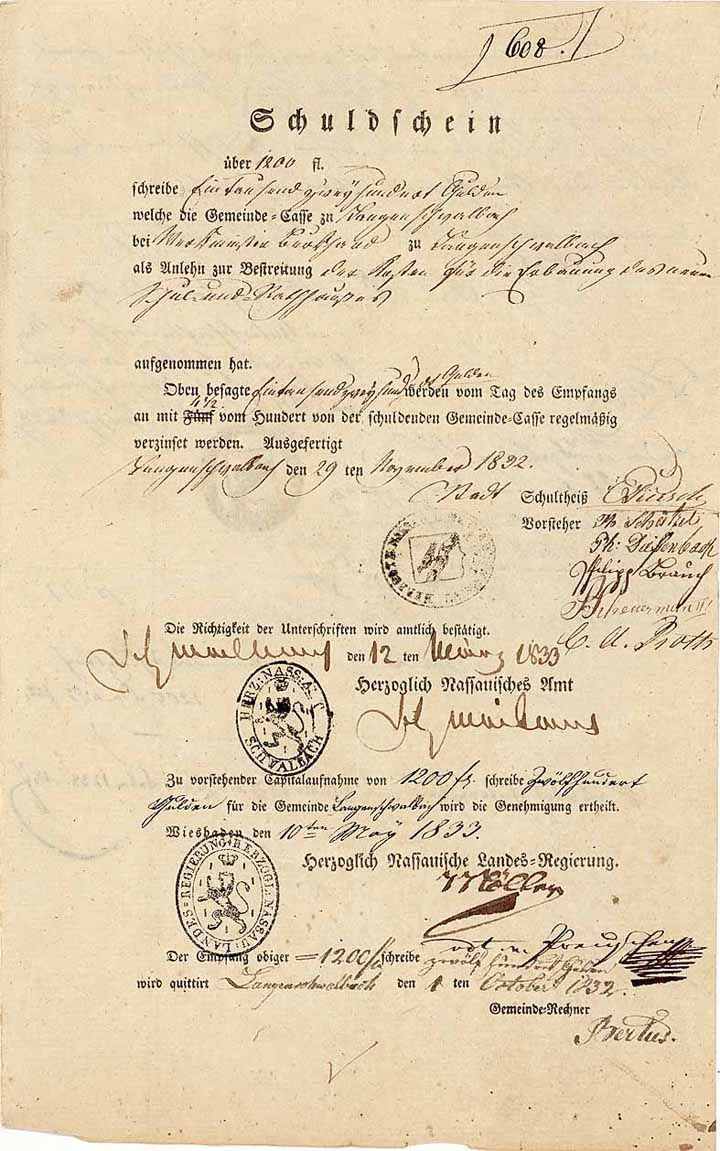 608.
Schuldschein
über 1200 fl.
schreibe Eintausend zweyhundert Gulden
welche die Gemeinde=Casse zu Langenschwalbach
bei Werkmeister zu Langenschwalbach
als Anlehn zur Bestreitung der Kosten für die Erbauung des neuen
Schul- und Rathhauses
aufgenommen hat.
Oben besagte Eintausend zweyhundert Gulden werden vom Tag des Empfangs
an mit 4 1/2 Fünf vom Hundert von der schuldenden Gemeinde=Casse regelmäßig
verzinset werden. Ausgefertigt
Langenschwalbach den 29 ten November 1832.
Stadt Schultheiß
Vorsteher
Ph: Diefenbach
Philipp Brauch
C. A. Roth
Die Richtigkeit der Unterschriften wird amtlich bestätigt.
den 12 ten März 1833
Herzoglich Nassauisches Amt
HERZ: NASS: A: L: SCHWALBACH
Zu vorstehender Capitalaufnahme von 1200 fl. schreibe Zwölfhundert
Gulden für die Gemeinde Langenschwalbach wird die Genehmigung ertheilt.
Wiesbaden den 10ten May 1833.
Herzoglich Nassauische Landes=Regierung.
HERZOGL: NASSAU: LANDES=REGIERUNG
Möller
vdt
Der Empfang obiger =1200 fl schreibe zwölf hundert Gulden
wird quittirt Langenschwalbach den 1 ten October 1832.
Gemeinde=Rechner
Bertus.